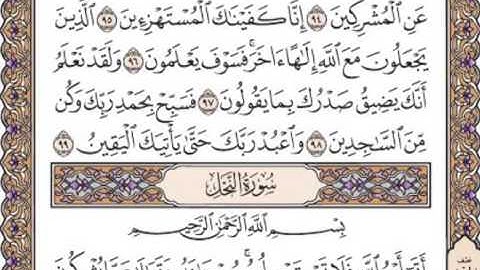 عَنِ الْمُشْرِكِينَ ٩٤ إِنَّا كَفَيْنَاكَ الْمُسْتَهْزِءِينَ ٩٥ الَّذِينَ
يَجْعَلُونَ مَعَ اللَّهِ إِلَٰهًا ءَاخَرَ ۚ فَسَوْفَ يَعْلَمُونَ ٩٦ وَلَقَدْ نَعْلَمُ
أَنَّكَ يَضِيقُ صَدْرُكَ بِمَا يَقُولُونَ ٩٧ فَسَبِّحْ بِحَمْدِ رَبِّكَ وَكُن
مِّنَ السَّاجِدِينَ ٩٨ وَاعْبُدْ رَبَّكَ حَتَّىٰ يَأْتِيَكَ الْيَقِينُ ٩٩
سُورَةُ النَّحْلِ
بِسْمِ اللَّهِ الرَّحْمَٰنِ الرَّحِيمِ